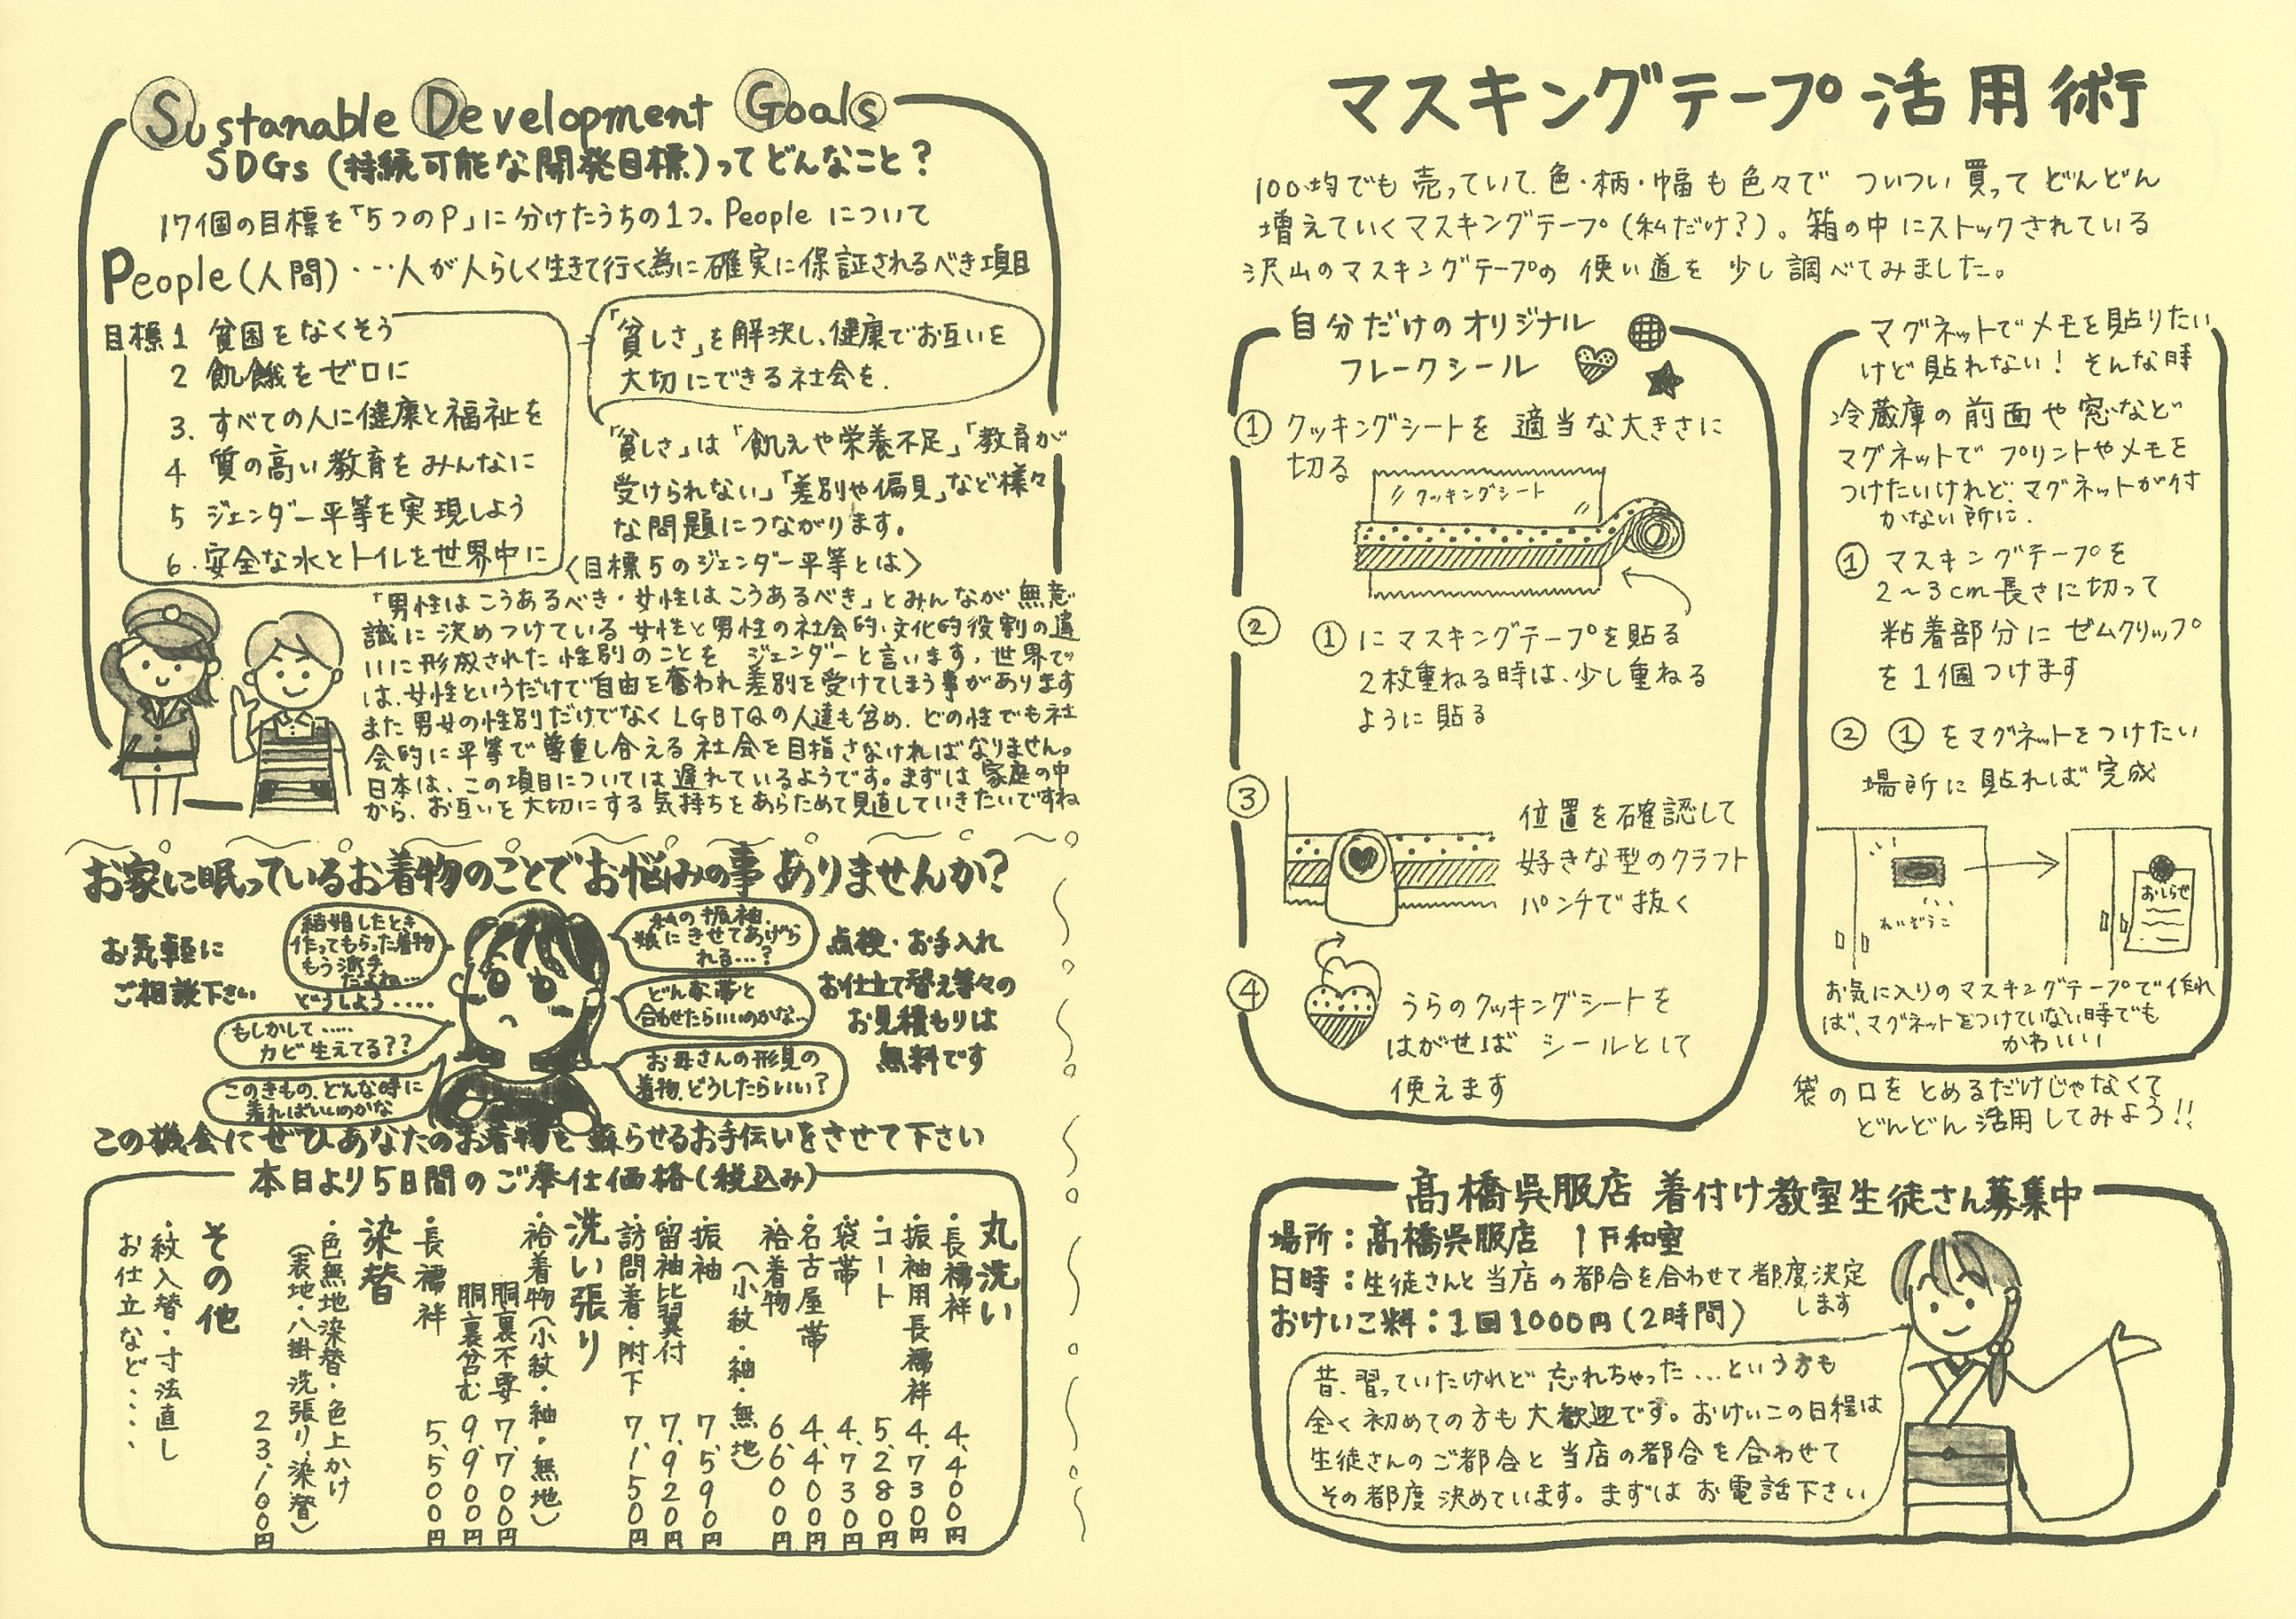 Sustanable Development Goals
SDGs (持続可能な開発目標)ってどんなこと?
17個の目標を「5つのP」に分けたうちの1つ。Peopleについて
People(人間)・・・人が人らしく生きて行く為に確実に保証されるべき項目
目標1 貧困をなくそう
2 飢餓をゼロに
3. すべての人に健康と福祉を
4 質の高い教育をみんなに
5 ジェンダー平等を実現しよう
6. 安全な水とトイレを世界中に
「貧しさ」を解決し、健康でお互いを
大切にできる社会を.
「貧しさ」は「飢えや栄養不足」「教育が
受けられない」「差別や偏見」など様々
な問題につながります。
〈目標5のジェンダー平等とは〉
「男性はこうあるべき・女性はこうあるべき」とみんなが無意
識に決めつけている女性と男性の社会的、文化的役割の違
いに形成された性別のことを ジェンダーと言います。世界で
は、女性というだけで自由を奪われ差別を受けてしまう事があります
また男女の性別だけでなくLGBTQの人達も含め、どの性でも社
会的に平等で尊重し合える社会を目指さなければなりません。
日本は、この項目については遅れているようです。まずは家庭の中
から、お互いを大切にする気持ちをあらためて見直していきたいですね
お家に眠っているお着物のことでお悩みの事ありませんか?
お気軽に
ご相談下さい
結婚したとき
作ってもらった着物
もう派手
だよね…
どうしよう.....
もしかして.....
カビ生えてる??
このきもの、どんな時に
着ればいいのかな
私の振袖、
娘にきせてあげら
れる…?
どんな帯と
合わせたらいいのかな…
お母さんの形見の
着物、どうしたらいい?
点検・お手入れ
お仕立て替え等々の
お見積もりは
無料です
この機会にぜひあなたのお着物を蘇らせるお手伝いをさせて下さい
本日より5日間のご奉仕価格(税込み)
丸洗い
・長襦袢 4,400円
・振袖用長襦袢 4,730円
・コート 5,280円
・袋帯 4,730円
・名古屋帯 4,400円
・袷着物 6,600円
(小紋・紬・無地)
・振袖 7,590円
・留袖比翼付 7,920円
・訪問着・附下 7,150円
洗い張り
・袷着物(小紋・紬・無地)
胴裏不要 7,700円
胴裏含む 9,900円
・長襦袢 5,500円
染替
・色無地染替・色上かけ
(表地・八掛洗張り、染替)
23,100円
その他
・紋入替・寸法直し
お仕立など・・・・
マスキングテープ活用術
100均でも売っていて、色・柄・幅も色々で ついつい買ってどんどん
増えていくマスキングテープ(私だけ?)。箱の中にストックされている
沢山のマスキングテープの使い道を少し調べてみました。
自分だけのオリジナル
フレークシール
① クッキングシートを適当な大きさに
切る
クッキングシート
② ①にマスキングテープを貼る
2枚重ねる時は、少し重ねる
ように貼る
③ 位置を確認して
好きな型のクラフト
パンチで抜く
④ うらのクッキングシートを
はがせば シールとして
使えます
マグネットでメモを貼りたい
けど貼れない! そんな時
冷蔵庫の前面や窓など
マグネットでプリントやメモを
つけたいけれど、マグネットが付
かない所に.
① マスキングテープを
2〜3cm長さに切って
粘着部分にゼムクリップ
を1個つけます
② ①をマグネットをつけたい
場所に貼れば完成
れいぞうこ
おしらせ
お気に入りのマスキングテープで作れ
ば、マグネットをつけていない時でも
かわいい
袋の口をとめるだけじゃなくて
どんどん活用してみよう!!
髙橋呉服店 着付け教室生徒さん募集中
場所:髙橋呉服店 1F和室
日時:生徒さんと当店の都合を合わせて都度決定
します
おけいこ料:1回1000円(2時間)
昔、習っていたけれど忘れちゃった…という方も
全く初めての方も大歓迎です。おけいこの日程は
生徒さんのご都合と当店の都合を合わせて
その都度決めています。まずはお電話下さい